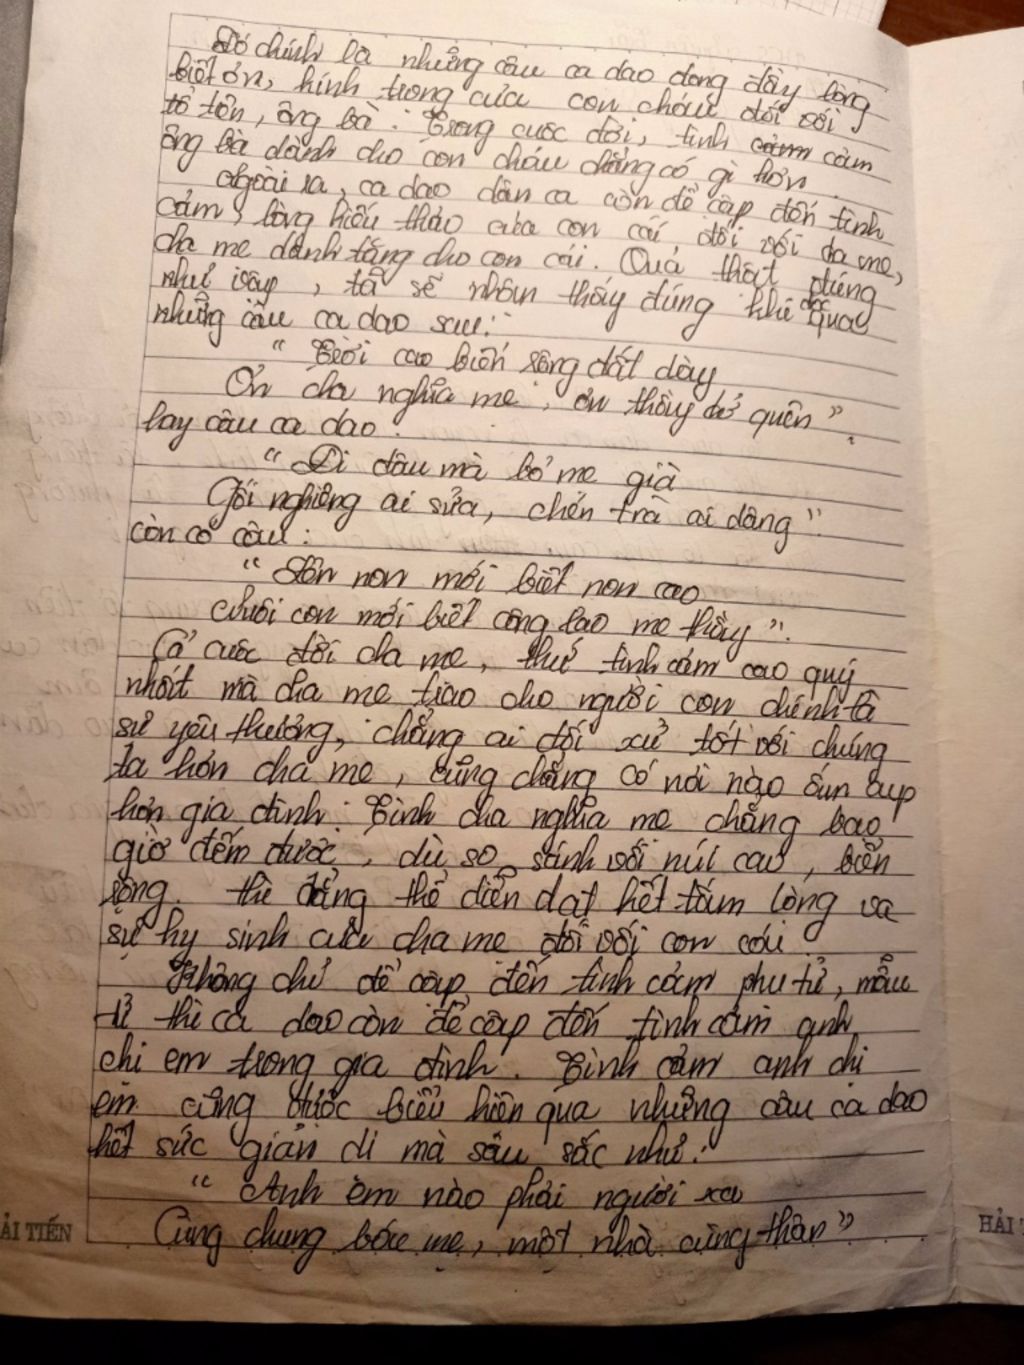 Đó chính là những câu ca dao dong đầy lòng
biết ơn, kính trọng của con cháu đối với
tổ tiên, ông bà. Trong cuộc đời, tình cảm
ông bà dành cho con cháu chẳng có gì hơn.
Ngoài ra, ca dao dân ca còn đề cập đến tình
cảm, lòng hiếu thảo của con cái, đối với cha mẹ,
cha mẹ dành tặng cho con cái. Quả thật đúng
như vậy, ta sẽ nhận thấy đúng khi đọc qua
những câu ca dao sau:
"Trời cao biển rộng đất dày
Ơn cha nghĩa mẹ, ơn thầy dễ quên".
hay câu ca dao.
"Đi đâu mà bỏ mẹ già
Gối nghiêng ai sửa, chén trà ai dâng"
còn có câu:
"Lên non mới biết non cao
Nuôi con mới biết công lao mẹ thầy".
Cả cuộc đời cha mẹ, thứ tình cảm cao quý
nhất mà cha mẹ trao cho người con chính là
sự yêu thương, chẳng ai đối xử tốt với chúng
ta hơn cha mẹ, cũng chẳng có nơi nào ấm áp
hơn gia đình. Tình cha nghĩa mẹ chẳng bao
giờ đếm được, dù so sánh với núi cao, biển
rộng. thì chẳng thể diễn đạt hết tấm lòng và
sự hy sinh của cha mẹ đối với con cái
Không chỉ đề cập đến tình cảm phụ tử, mẫu
tử thì ca dao còn đề cập đến tình cảm anh
chị em trong gia đình. Tình cảm anh chị
em cũng được biểu hiện qua những câu ca dao
hết sức giản dị mà sâu sắc như:
"Anh em nào phải người xa
Cùng chung bác mẹ, một nhà cùng thân"
ẢI TIẾN
HẢI